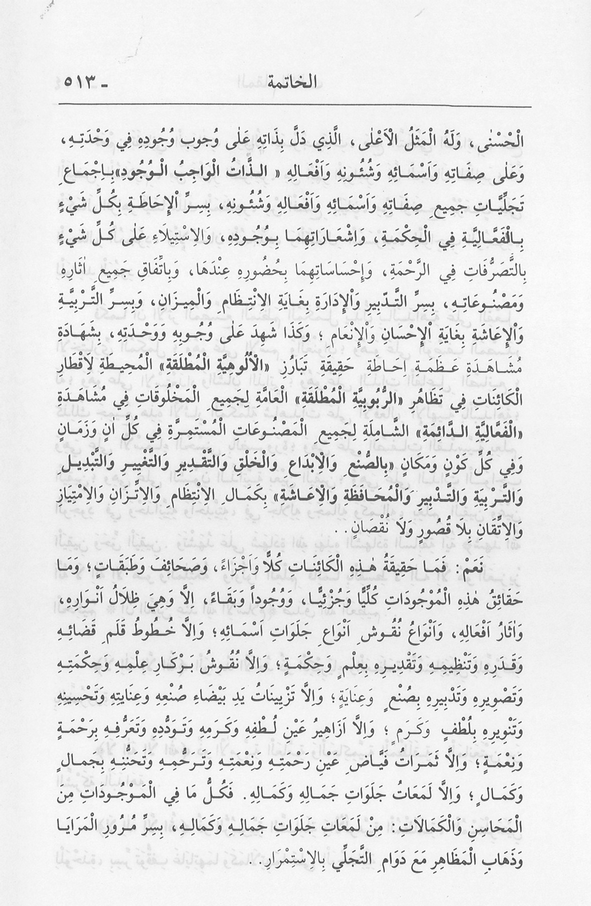 الخاتمة - ٥١٣
الْحُسْنٰى، وَلَهُ الْمَثَلُ الْاَعْلٰى، الَّذِي دَلَّ بِذَاتِهِ عَلٰى وُجُوبِ وُجُودِهِ فِي وَحْدَتِهِ،
وَعَلٰى صِفَاتِهِ وَاَسْمَائِهِ وَشُئُونِهِ وَاَفْعَالِهِ « الـذَّاتُ الْوَاجِبُ الْـوُجُودِ» بِـاِجْمَاعِ
تَجَلِّيَاتِ جَمِيعِ صِفَاتِهِ وَاَسْمَائِهِ وَاَفْعَالِهِ وَشُئُونِهِ، بِسِرِّ اْلاِحَاطَةِ بِكُلِّ شَيْءٍ
بِـالْفَعَّالِيَّةِ فِي الْحِكْمَةِ، وَاِشْعَارَاتِهِمَا بِـوُجُودِهِ، وَاْلاِسْتِيلَاءِ عَلٰى كُـلِّ شَيْءٍ
بِالتَّصَرُّفَاتِ فِي الرَّحْمَةِ، وَاِحْسَاسَاتِهِمَا بِحُضُورِهِ عِنْدَهَا، وَبِاتِّفَاقِ جَمِيعِ اٰثَارِهِ
وَمَصْـنُوعَاتِـهِ، بِسِرِّ التَّـدْبِيرِ وَاْلاِدَارَةِ بِغَايَةِ اْلاِنْتِـظَامِ وَالْمِيـزَانِ، وَبِسِرِّ التَّرْبِيَّةِ
وَاْلاِعَاشَةِ بِغَايَةِ اْلاِحْسَانِ وَاْلاِنْعَامِ ؛ وَكَذَا شَهِدَ عَلٰى وُجُـوبِهِ وَوَحْدَتِهِ، بِشَهَادَةِ
مُشَاهَـدَةِ عَـظَمَةِ اِحَاطَةِ حَقِيقَةِ تَبَارُزِ «الْاُلُوهِيَّةِ الْمُطْلَقَةِ» الْمُحِيطَةِ لِاَقْطَارِ
الْكَائِنَاتِ فِي تَظَاهُرِ «الرُّبُوبِيَّةِ الْمُطْلَقَةِ» الْعَامَّةِ لِجَمِيعِ الْمَخْلُوقَاتِ فِي مُشَاهَدَةِ
«الْفَعَّالِيَّةِ الـدَّائِمَةِ» الشَّامِلَةِ لِجَمِيعِ الْمَصْنُـوعَاتِ الْمُسْتَمِـرَّةِ فِي كُلِّ اٰنٍ وَزَمَانٍ
وَفِي كُلِّ كَوْنٍ وَمَكَانٍ «بِالصُّنْعِ وَاْلاِبْدَاعِ وَالْخَلْقِ وَالتَّقْدِيرِ وَالتَّغْيِيرِ وَالتَّبْدِيلِ
وَالتَّرْبِيَةِ وَالتَّدْبِيرِ وَالْمُحَافَظَةِ وَاْلاِعَاشَةِ» بِكَمَالِ اْلاِنْتِظَامِ وَاْلاِتِّزَانِ وَاْلاِمْتِيَازِ
وَاْلاِتْقَانِ بِلَا قُصُورٍ وَلَا نُقْصَانٍ..
نَعَمْ: فَمَا حَقِيقَةُ هٰذِهِ الْكَائِنَاتِ كُلًّا وَاَجْزَاءً، وَصَحَائِفَ وَطَبَقَاتٍ؛ وَمَا
حَقَائِقُ هٰذِهِ الْمَوْجُودَاتِ كُلِّيًّا وَجُزْئِيًّا، وَوُجُوداً وَبَقَاءً، اِلَّا وَهِيَ ظِلَالُ اَنْـوَارِهِ،
وَاٰثَارُ اَفْعَالِهِ، وَاَنْوَاعُ نُقُوشِ اَنْوَاعِ جَلَوَاتِ اَسْمَائِهِ؛ وَاِلَّا خُـطُوطُ قَلَمِ قَضَائِهِ
وَقَـدَرِهِ وَتَنْظِيمِـهِ وَتَقْدِيـرِهِ بِعِلْمٍ وَحِكْمَةٍ؛ وَاِلَّا نُقُوشُ بَـرْكَارِ عِلْمِـهِ وَحِكْمَتِـهِ
وَتَصْوِيرِهِ وَتَدْبِيرِهِ بِصُنْعٍ وَعِنَايَةٍ؛ وَاِلَّا تَزْيِينَاتُ يَدِ بَيْضَاءِ صُنْعِهِ وَعِنَايَتِهِ وَتَحْسِينِهِ
وَتَنْوِيرِهِ بِلُطْفٍ وَكَرَمٍ ؛ وَاِلَّا اَزَاهِيرُ عَيْنِ لُـطْفِهِ وَكَرَمِهِ وَتَـوَدُّدِهِ وَتَعَرُّفِهِ بِرَحْمَةٍ
وَنِعْمَةٍ؛ وَاِلَّا ثَمَرَاتُ فَيَّاضِ عَيْنِ رَحْمَتِهِ وَنِعْمَتِهِ وَتَرَحُّمِهِ وَتَحَنُّنِهِ بِجَمَالٍ
وَكَمَالٍ؛ وَاِلَّا لَمَعَاتُ جَلَوَاتِ جَمَالِهِ وَكَمَالِهِ. فَكُلُّ مَا فِي الْمَوْجُودَاتِ مِنَ
الْمَحَاسِنِ وَالْكَمَالَاتِ: مِنْ لَمَعَاتِ جَلَوَاتِ جَمَالِهِ وَكَمَالِهِ، بِسِرِّ مُرُورِ الْمَرَايَا
وَذَهَابِ الْمَظَاهِرِ مَعَ دَوَامِ التَّجَلِّي بِاْلاِسْتِمْرَارِ..